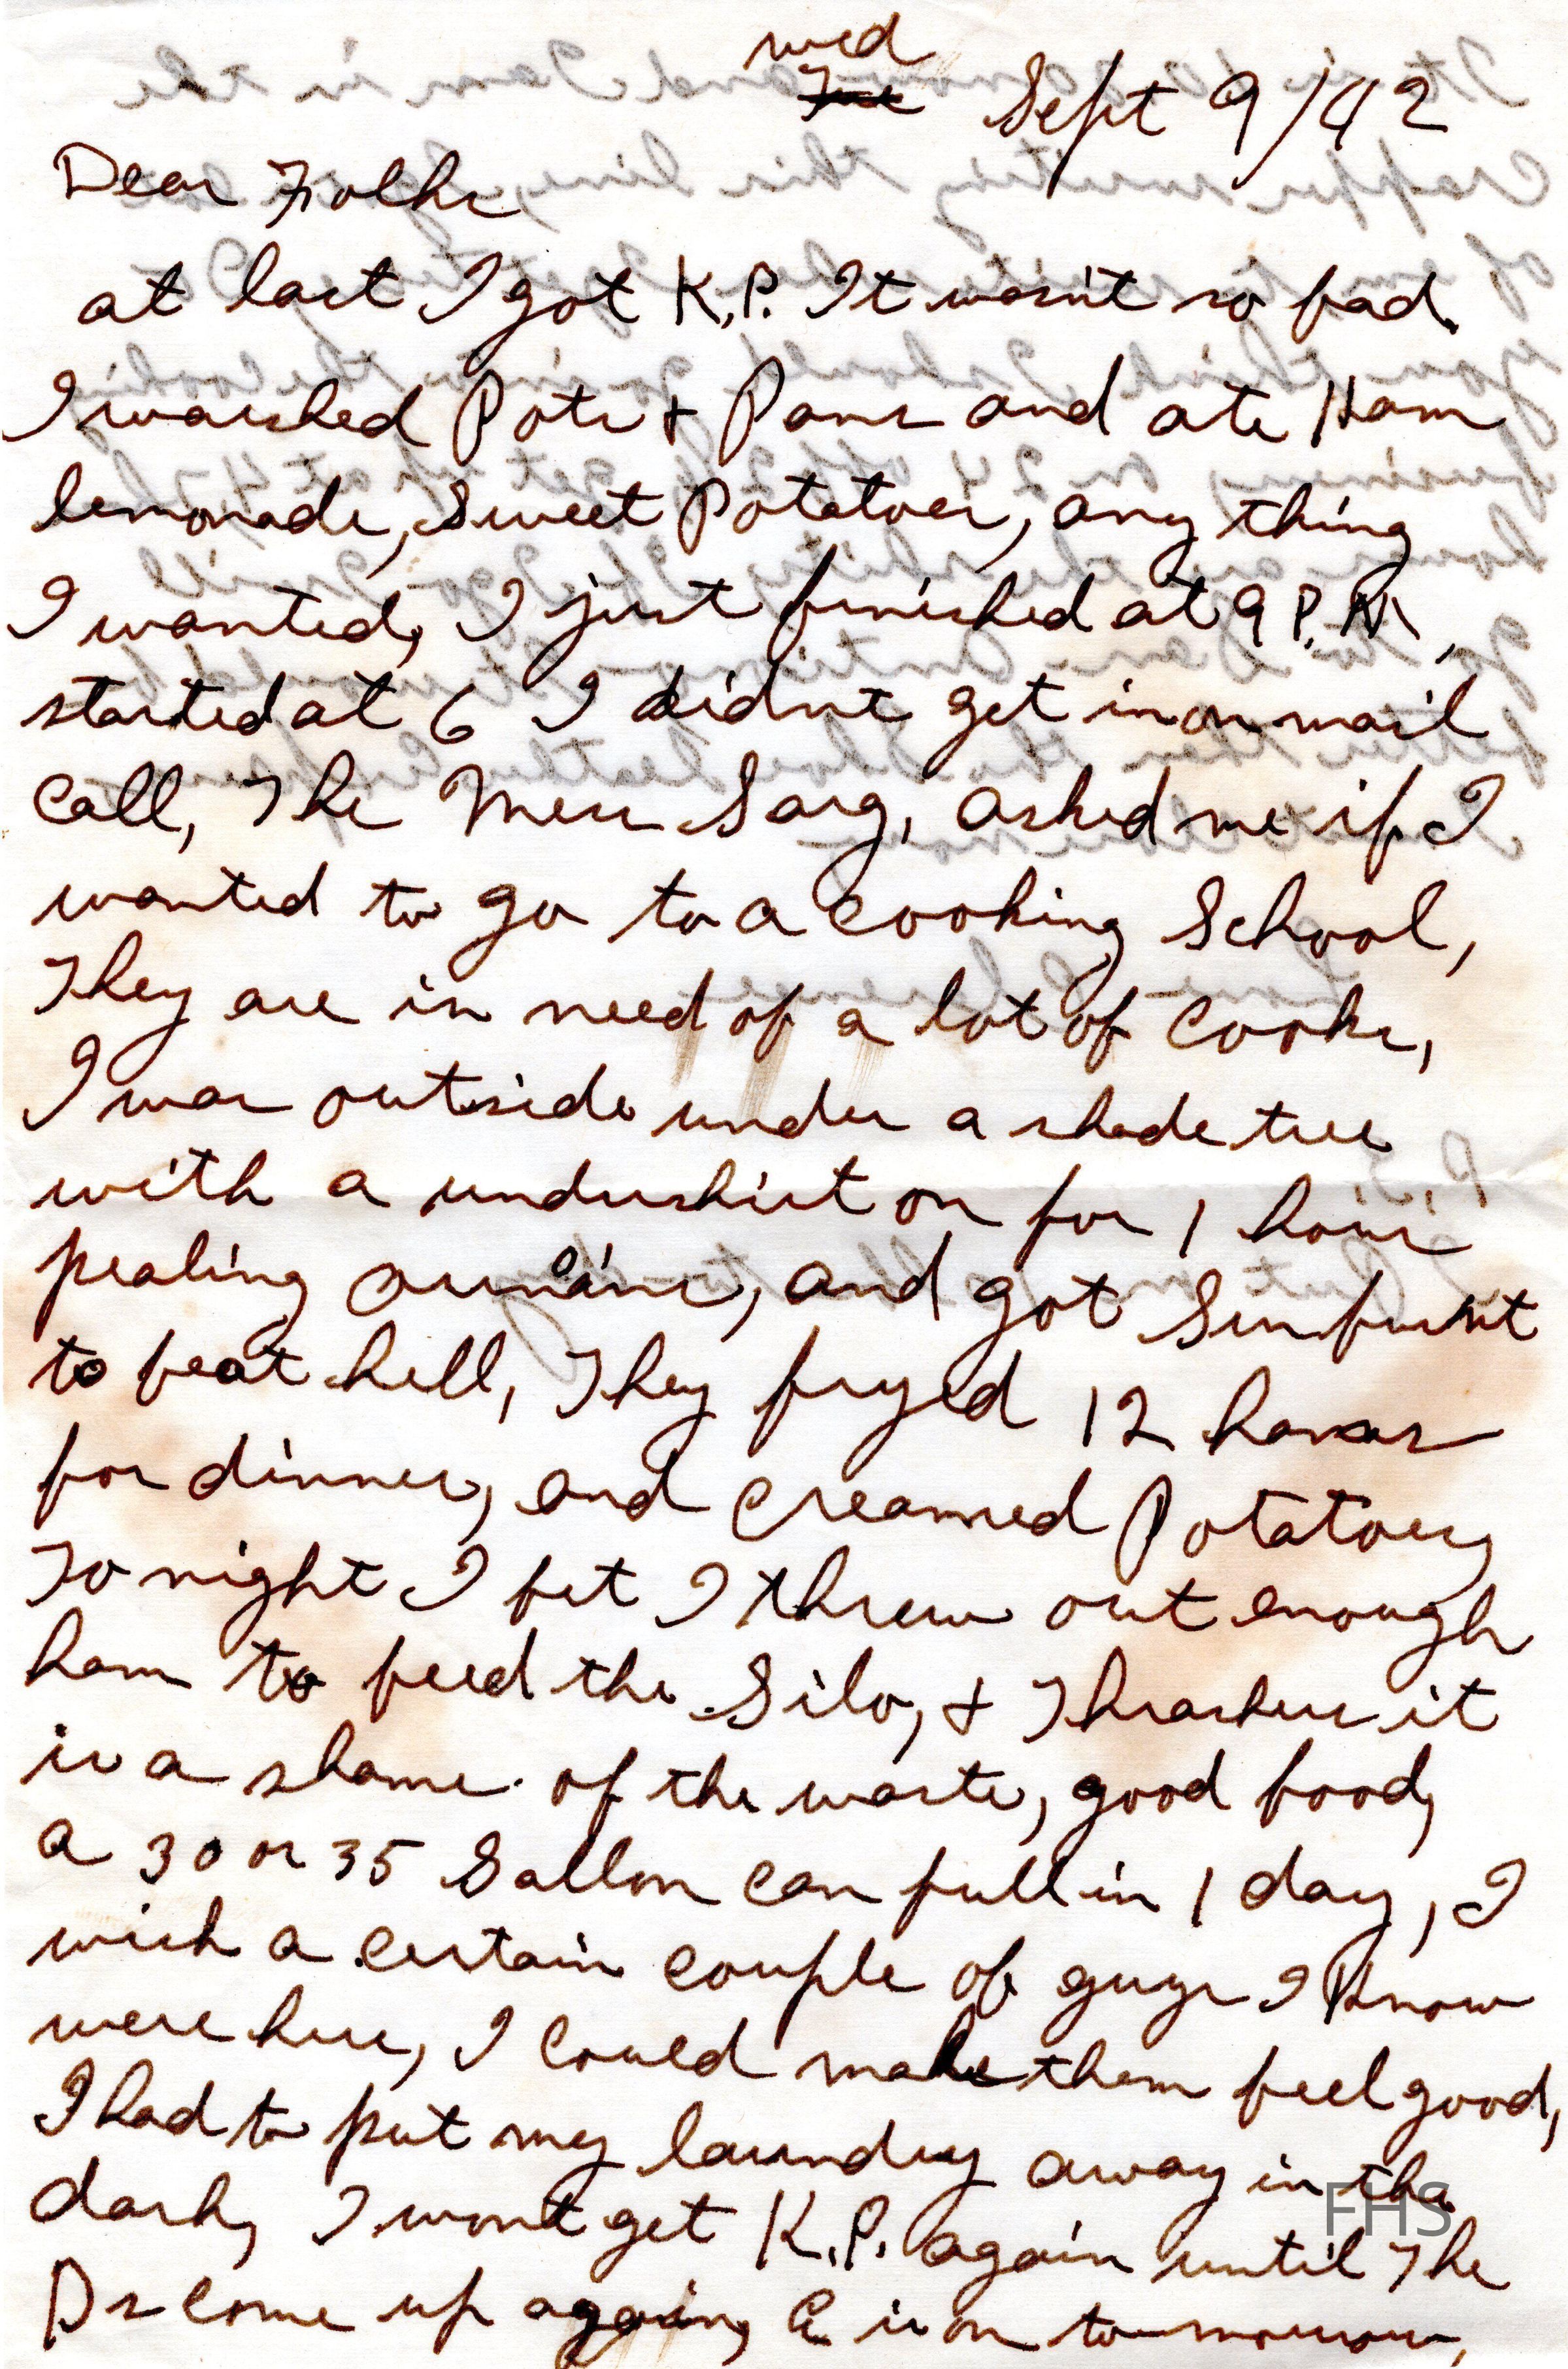 Wed
Tue Sept 9/42
Dear Folks
at last I got K.P. It wasn't so bad.
I washed Pots & Pans and ate Ham
lemonade, Sweet Potatoes, any thing
I wanted, I just finished at 9 P.M.,
started at 6 I didnt get in on mail
Call, The Mess Sarg, asked me if I
wanted to go to a cooking School,
They are in need of a lot of Cooks,
I was outside under a shade tree
with a undershirt on for 1 hour
pealing and got Sunburnt
to beat hell, They fryed 12 hams
for dinner, and Creamed Potatoes,
To night I bet I threw out enough
ham to feed the Silo, & Thrashers it
is a shame of the waste, good food,
a 30 or 35 Gallon can full in 1 day, I
wish a certain couple of guys I Know
were here, I could make them feel good,
I had to put my laundry away in the
dark, I wont get K.P. again until The
Ds come up again, C is on to-morrow,
FHS